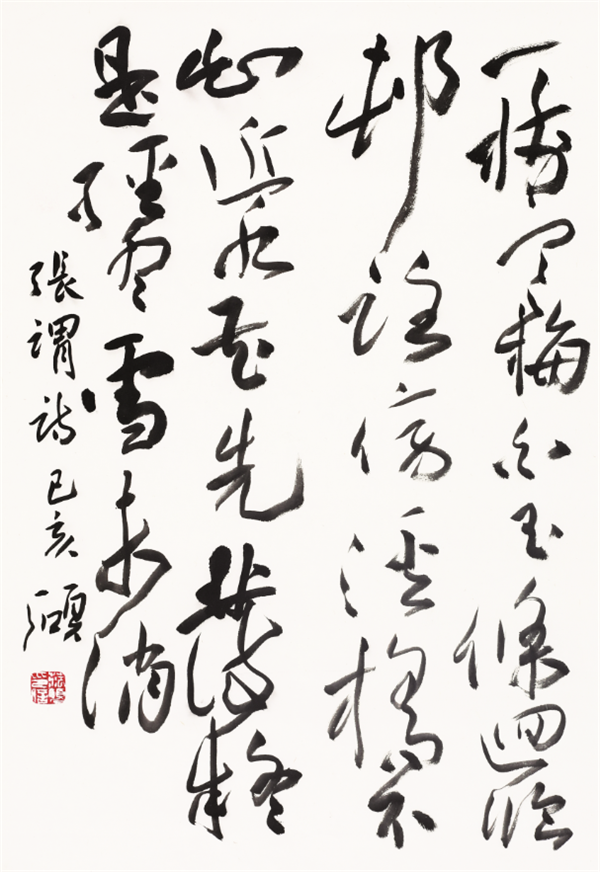 一樹寒梅白玉條迥臨
村路傍溪橋不
知近水花先發疑
是經冬雪未消
張謂詩己亥碩